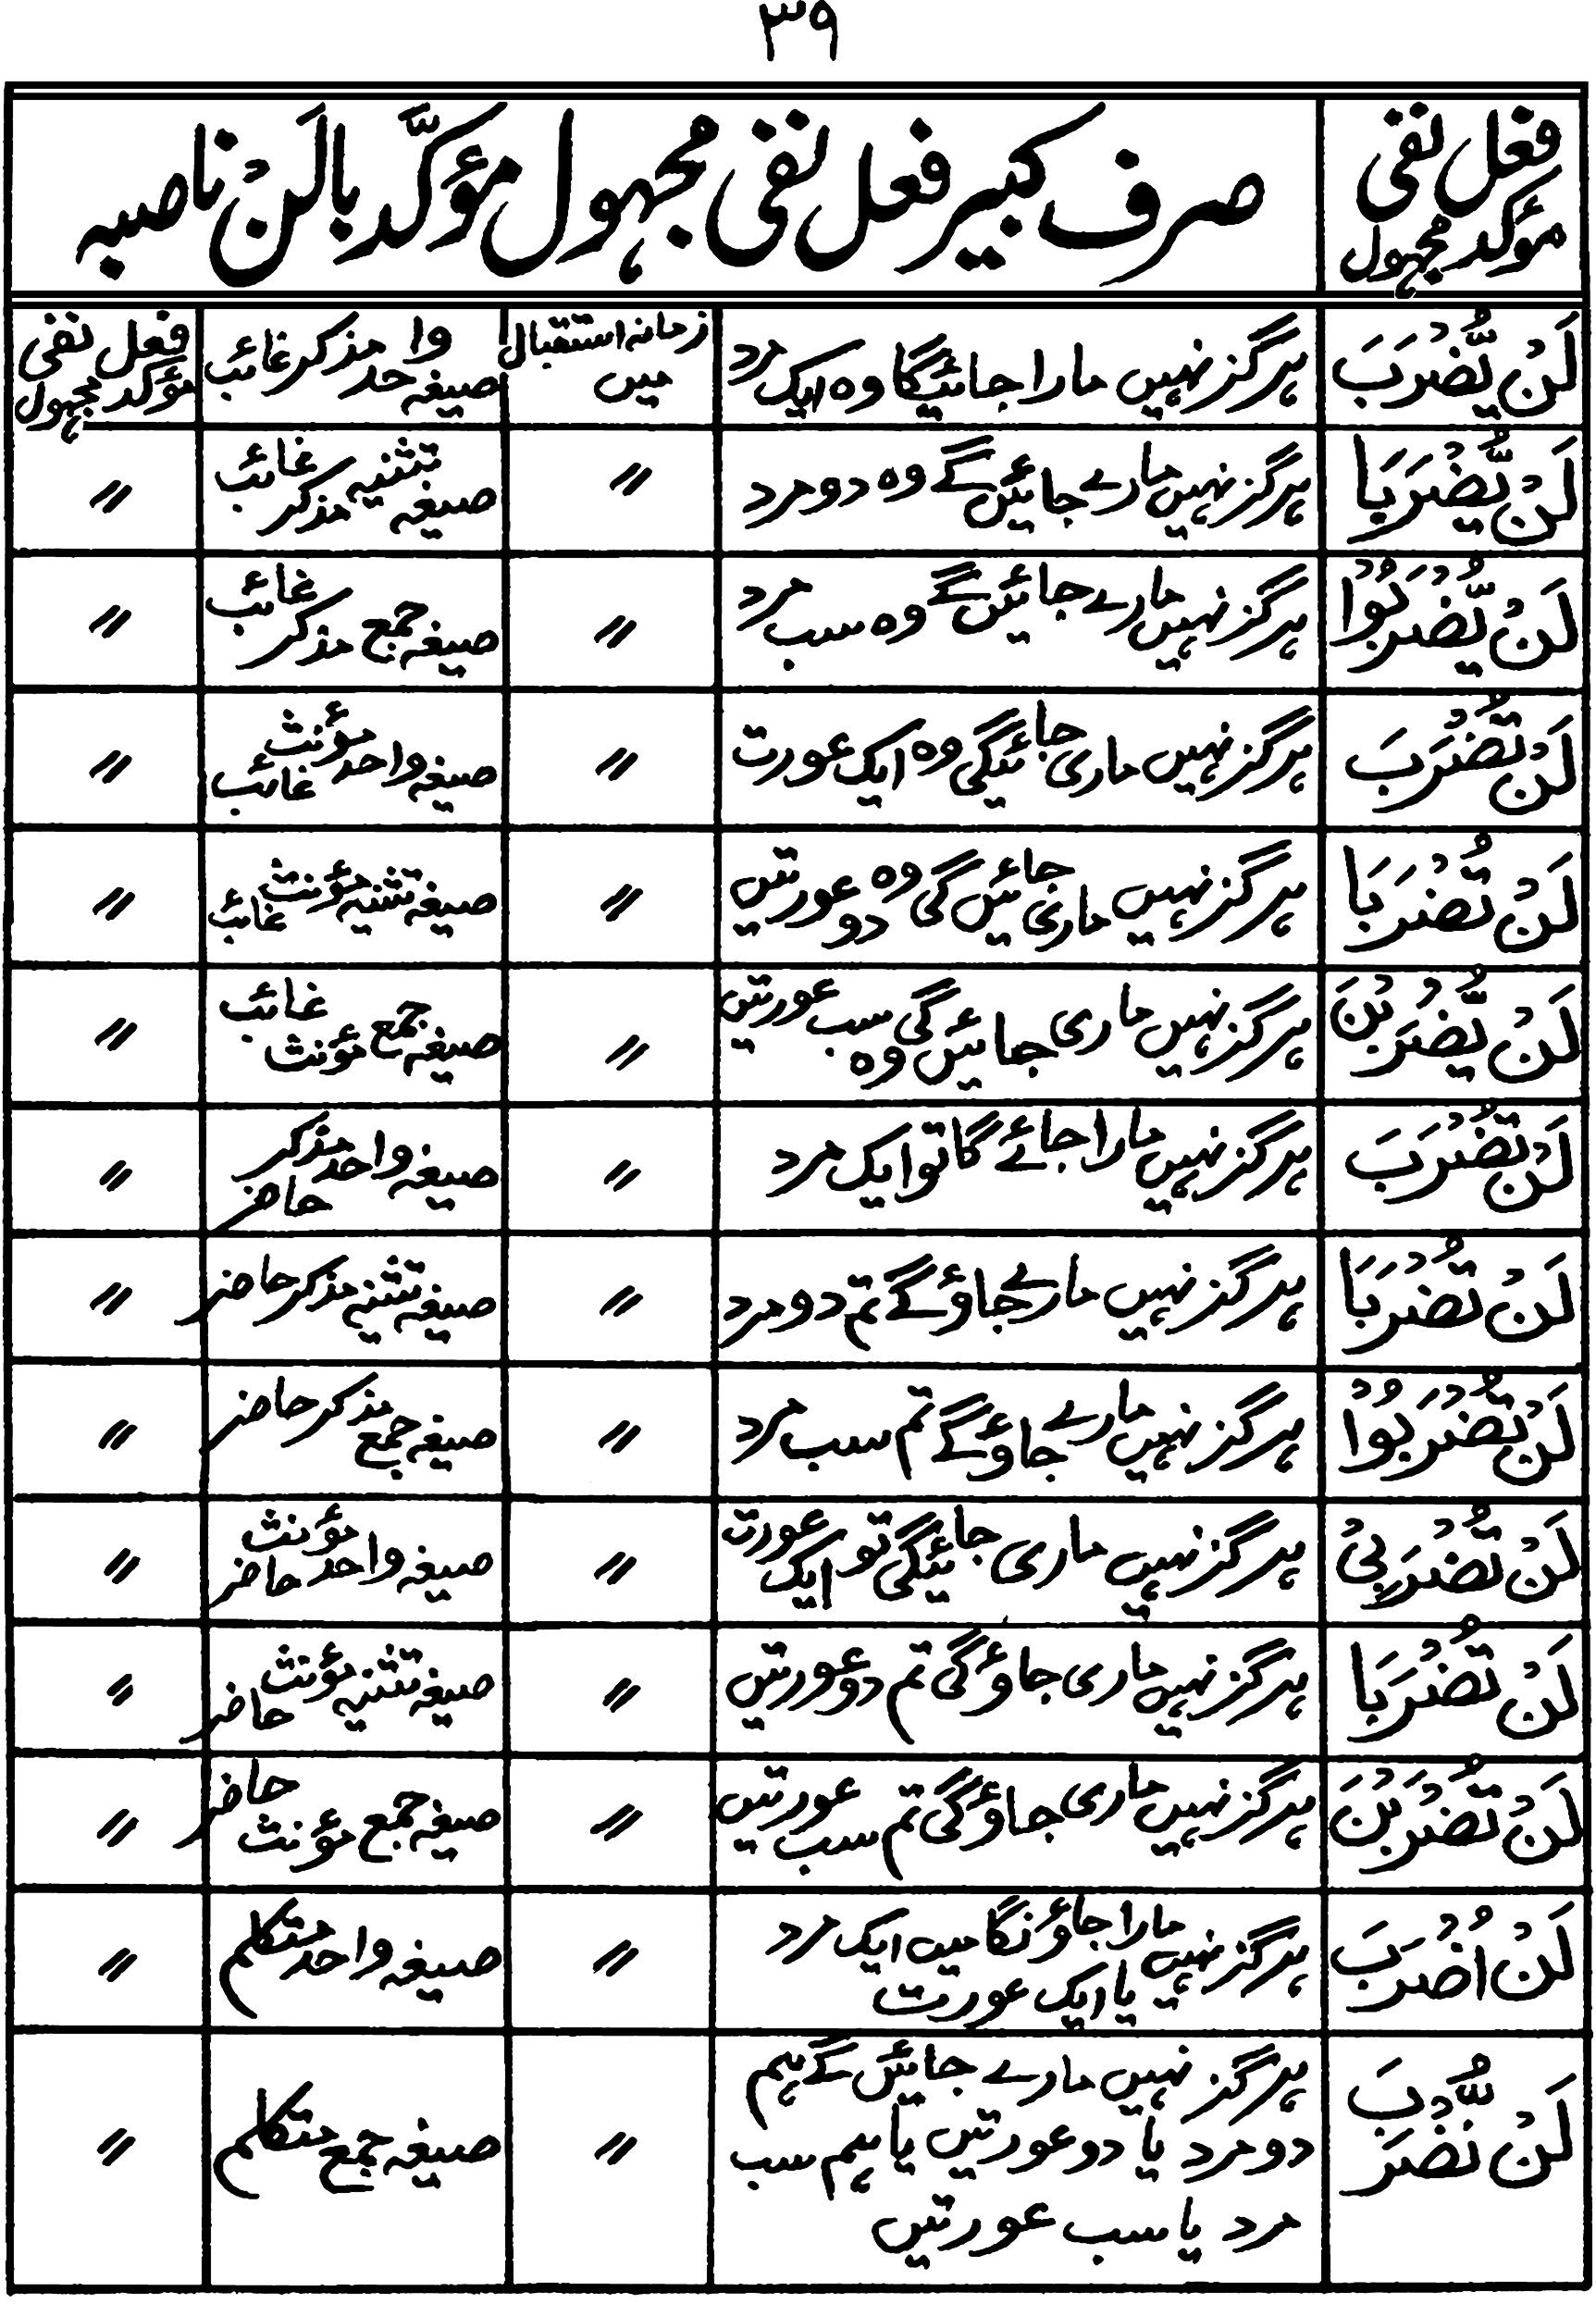 ۳۹
فعل نفی مؤکد مجہول
صرف کبیر فعل نفی مجہول مؤکَّد بالَنْ ناصبہ
لَنْ یُّضْرَبَ ہرگز نہیں مارا جائیگا وہ ایک مرد زمانہ استقبال میں صیغہ واحد مذکر غائب فعل نفی مؤکد مجہول
لَنْ یُّضْرَبَا ہرگز نہیں مارے جائیں گے وہ دو مرد 〃 صیغہ تثنیہ مذکر غائب 〃
لَنْ یُّضْرَبُوْا ہرگز نہیں مارے جائیں گے وہ سب مرد 〃 صیغہ جمع مذکر غائب 〃
لَنْ تُضْرَبَ ہرگز نہیں ماری جائیگی وہ ایک عورت 〃 صیغہ واحد مؤنث غائب 〃
لَنْ تُضْرَبَا ہرگز نہیں ماری جائیں گی وہ دو عورتیں 〃 صیغہ تثنیہ مؤنث غائب 〃
لَنْ یُّضْرَبْنَ ہرگز نہیں ماری جائیں گی وہ سب عورتیں 〃 صیغہ جمع مؤنث غائب 〃
لَنْ تُضْرَبَ ہرگز نہیں مارا جائے گا تو ایک مرد 〃 صیغہ واحد مذکر حاضر 〃
لَنْ تُضْرَبَا ہرگز نہیں مارے جاؤ گے تم دو مرد 〃 صیغہ تثنیہ مذکر حاضر 〃
لَنْ تُضْرَبُوْا ہرگز نہیں مارے جاؤ گے تم سب مرد 〃 صیغہ جمع مذکر حاضر 〃
لَنْ تُضْرَبِیْ ہرگز نہیں ماری جائیگی تو ایک عورت 〃 صیغہ واحد مؤنث حاضر 〃
لَنْ تُضْرَبَا ہرگز نہیں ماری جاؤ گی تم دو عورتیں 〃 صیغہ تثنیہ مؤنث حاضر 〃
لَنْ تُضْرَبْنَ ہرگز نہیں ماری جاؤ گی تم سب عورتیں 〃 صیغہ جمع مؤنث حاضر 〃
لَنْ اُضْرَبَ ہرگز نہیں مارا جاؤنگا میں ایک مرد یا ایک عورت 〃 صیغہ واحد متکلم 〃
لَنْ نُّضْرَبَ ہرگز نہیں مارے جائیں گے ہم
دو مرد یا دو عورتیں یا ہم سب 〃 صیغہ جمع متکلم 〃
مرد یا سب عورتیں